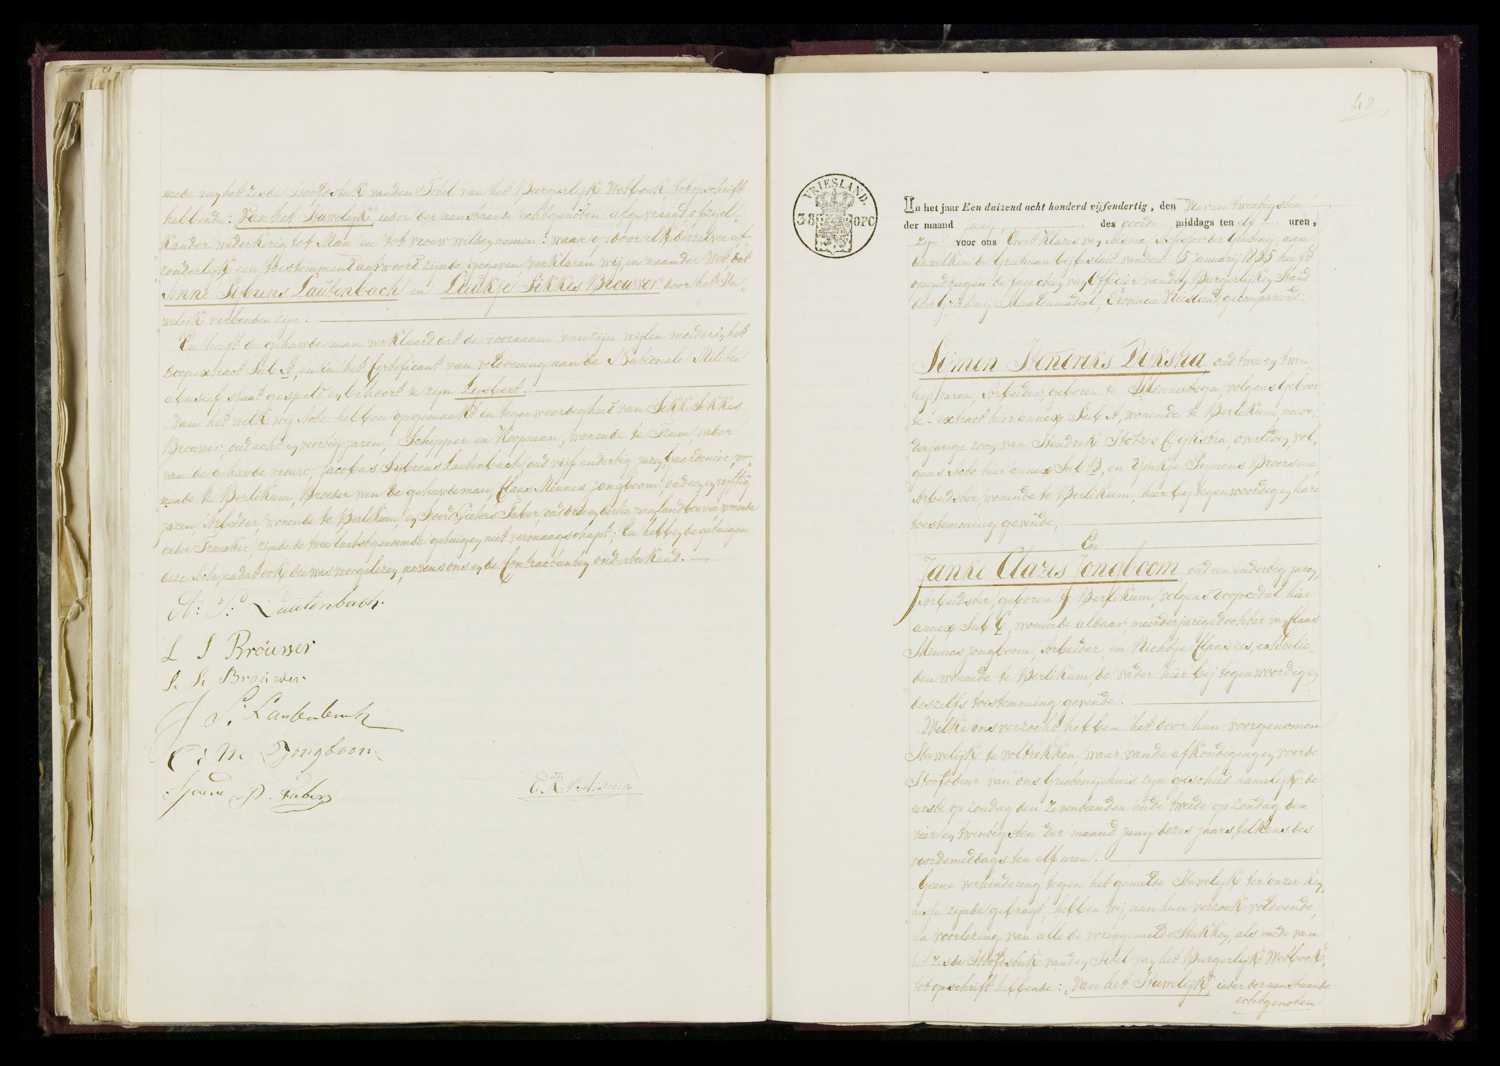 mede van het Zesde Hoofdstuk van den Titel van het Burgerlijk Wetboek tot opschrift
hebbende: Van het Huwelijk, ieder der aanstaande echtgenoten afgevraagd of zij el-
kander wederkerig tot Man en tot vrouw willen nemen: waarop door elk derzelve af-
zonderlijk een toestemmend antwoord zijnde gegeven verklaren wij, in naam der Wet dat
Anne Sijbrens Lautenbach en Laukje Sikkes Brouwer door het Hu-
welijk verbonden zijn.
En heeft de gehuwde man verklaard dat de voornaam van zijn wijlen moeder in het
doopextract Sub A, en in het Certificaat van voldoening aan de Nationale Militie
abusief staat gespeld en behoort te zijn Lijsbert.
Van het welk wij Acte hebben opgemaakt in tegenwoordigheid van Sikke Sikkes
Brouwer, oud acht en veertig jaren, Schipper en Koopman, wonende te Ham, vader
van de gehuwde vrouw, Jacobus Sijbrens Lautenbach, oud vijf en dertig jaren, gardenier, wo-
nende te Berlikum, Broeder van de gehuwde man, Claas Minnes Jongboom, oud en vijftig
jaren, Arbeider, wonende te Berlikum, en Sjoerd Pieters Faber, oud drie en dertig jaren, landbouwer wonende
onder Franeker, zijnde de twee laatstgenoemde getuigen niet vermaagschapt; En hebben de getuigen
deze Acte, nadat ook die was voorgelezen, nevens ons en de Contractanten onderteekend.
A: S: Lautenbach.
L S Brouwer
S. S. Brouwer
J S: Lautenbach
C: M: Jongboom
Sjoerd P. Faber
48
VRIESLAND.
38 OPC
In het jaar Een duizend acht honderd vijfendertig, den Vier en twintigsten
der maand des voor middags ten uren,
zijn voor ons
bevolken de Grietman bij besluit van den 15 januarij 1835 no.
opgedragen de functien van Officier van den Burgerlijken Stand
der Menaldumadeel, Provincie Vriesland gecompareerd:
Siemen Hendriks Dijkstra, oud twee en twin-
tig jaren, Arbeider, geboren te Minnertsga, volgens geboor-
te extract hier annex Sub A, wonende te Berlikum, meer-
derjarige zoon van Hendrik Dijkstra, overleden, vol-
gens acte hier annex Sub B, en IJbeltje Siemens Broersma,
Arbeidster, wonende te Berlikum, hier bij tegenwoordig en hare
toestemming gevende,
En
Janke Clazes Jongboom, oud een en dertig jaren,
Arbeidster, geboren te Berlikum, volgens doopcedul hier
annex Sub C, wonende aldaar, meerderjarige dochter van Claas
Minnes Jongboom, Arbeider, en Claazes, echtelie-
den wonende te Berlikum, de vader hier bij tegenwoordig en
deszelfs toestemming gevende.
Welke ons verzocht hebben het door hun voorgenomen
Huwelijk te voltrekken waar van de afkondigingen voor de
Hoofddeur van ons Grietenijhuis zijn geschied namelijk de
eerste op Zondag den Zeventienden en de tweede op Zondag den
vier en twintigsten der maand dezes jaars, telkens des
voordemiddags ten elf uren.
Geene verhindering tegen het gemelde Huwelijk ter onzer ken-
nisse zijnde gebragt, hebben wij, aan hun verzoek voldoende,
na voorlezing van alle de voorgemelde Stukken, als mede van
het Zesde Hoofdstuk van den Titel van het Burgerlijk Wetboek,
tot opschrift hebbende: Van het Huwelijk, ieder der aanstaande
echtgenoten